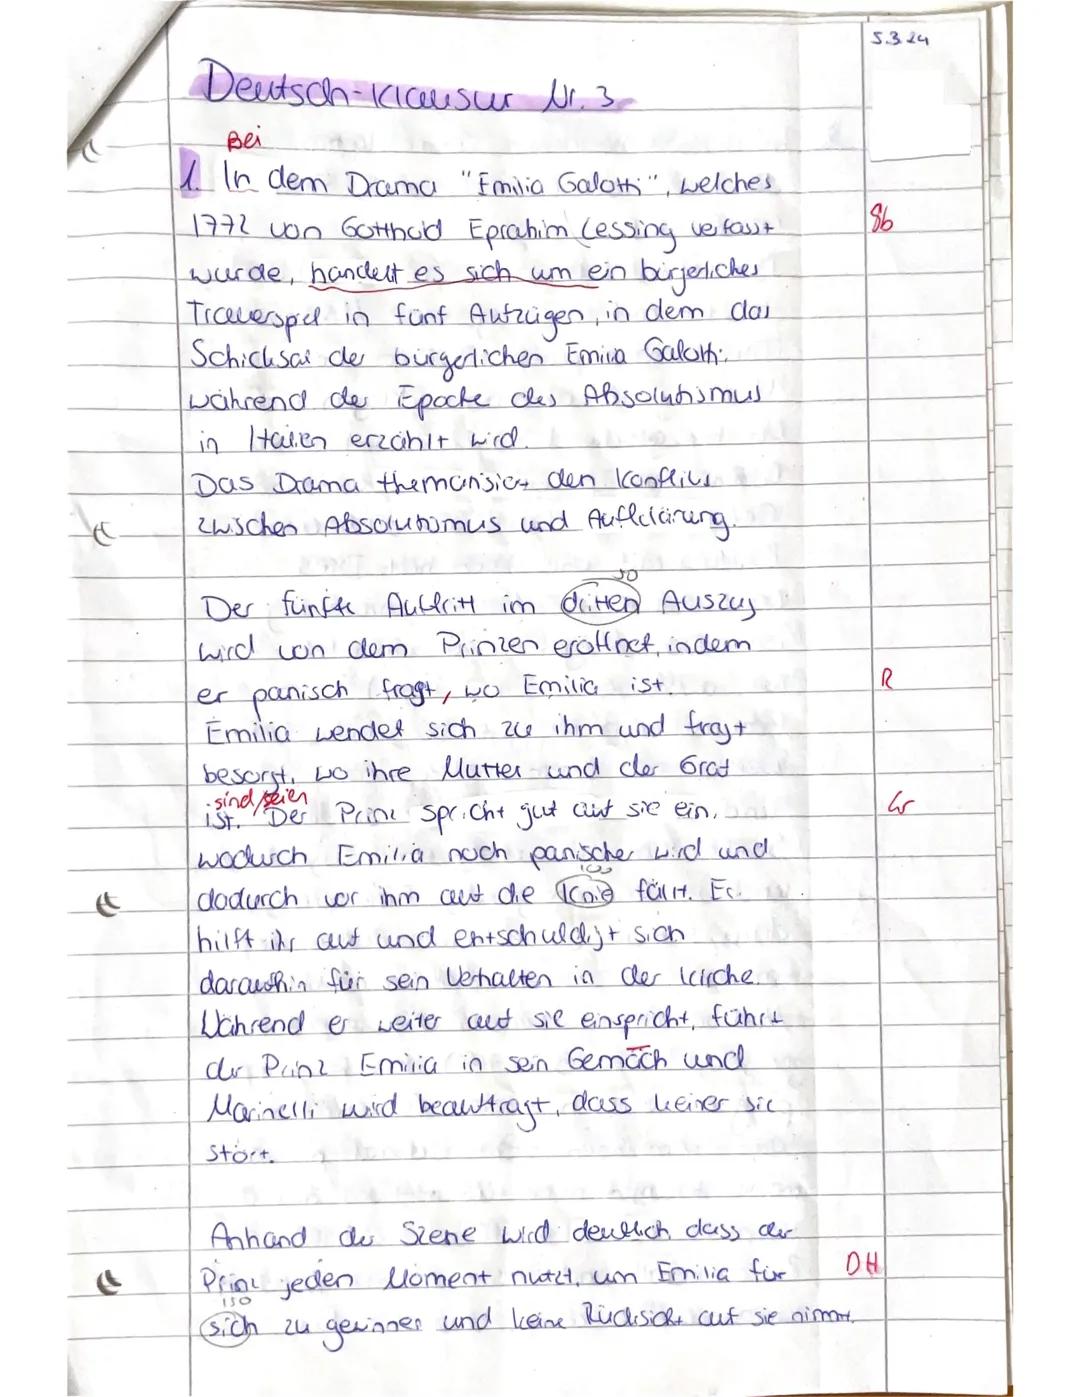 5.3.24
Deutsch-Klausur Nr. 3
Bei
1. In dem Drama "Emilia Galotti", welches
1772 von Gotthold Eprahim Lessing verfasst
Sb
wurde, handelt es sich um ein bürgerliches
Trauerspiel in fünf Aufzügen, in dem das
Schicksal der bürgerlichen Emilia Galotti
während der Epoche des Absolutismus
in Italien erzählt wird.
Das Drama thematisiert den Konflikt
zwischen Absolutismus und Aufklärung.
50
Der fünfte Auftritt im dritten Auszug
wird von dem Prinzen eröffnet, indem
er panisch fragt, wo Emilia ist.
R
Emilia wendet sich zu ihm und fragt
besorgt, wo ihre Mutter und der Graf
sind/seien
ist. Der Prinz spricht gut auf sie ein,
Gr
wodurch Emilia noch panischer wird und
100
dadurch vor ihm auf die Knie fällt. Er
hilft ihr auf und entschuldigt sich
daraufhin für sein Verhalten in der Kirche.
Während er weiter auf sie einspricht, führt
der Prinz Emilia in sein Gemäch und
Marinelli wird beauftragt, dass keiner sie
stört.
Anhand der Szene wird deutlich, dass der
Prinz jeden Moment nutzt, um Emilia für
DH
150
sich zu gewinnen und keine Rücksicht auf sie nimmt.